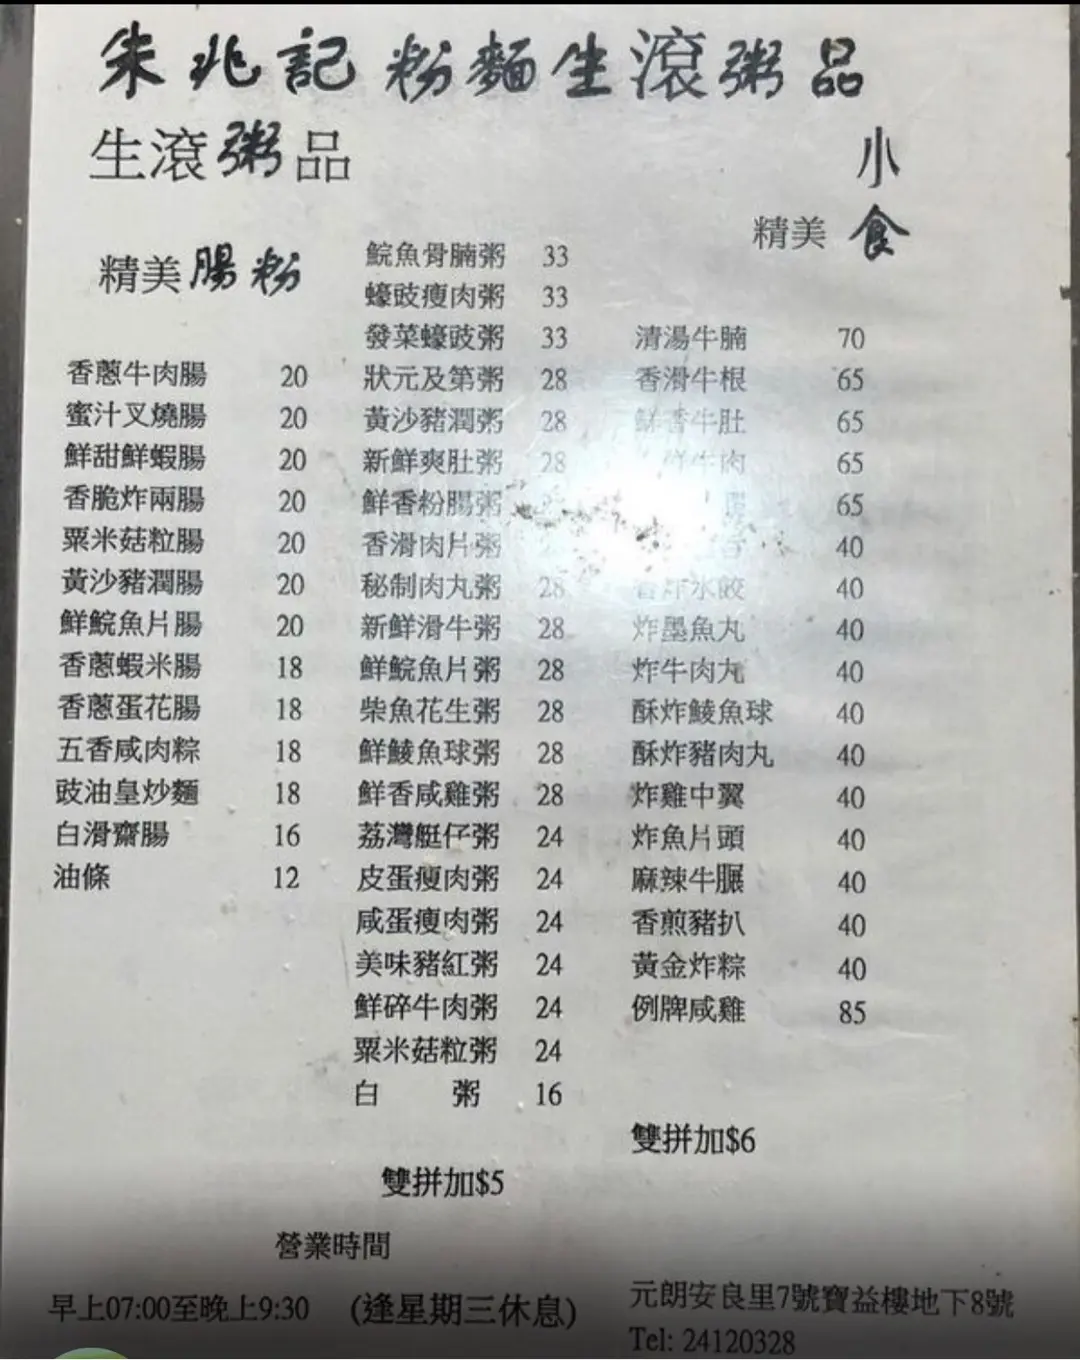 朱兆記粉麵生滾粥品
生滾粥品
精美腸粉
香蔥牛肉腸 20
蜜汁叉燒腸 20
鮮甜鮮蝦腸 20
香脆炸兩腸 20
粟米菇粒腸 20
黃沙豬潤腸 20
鮮鯇魚片腸 20
香蔥蝦米腸 18
香蔥蛋花腸 18
五香咸肉粽 18
豉油皇炒麵 18
白滑齋腸 16
油條 12
鯇魚骨腩粥 33
蠔豉瘦肉粥 33
發菜蠔豉粥 33
狀元及第粥 28
黃沙豬潤粥 28
新鮮爽肚粥 28
鮮香粉腸粥
香滑肉片粥
秘制肉丸粥 28
新鮮滑牛粥 28
鮮鯇魚片粥 28
柴魚花生粥 28
鮮鯪魚球粥 28
鮮香咸雞粥 28
荔灣艇仔粥 24
皮蛋瘦肉粥 24
咸蛋瘦肉粥 24
美味豬紅粥 24
鮮碎牛肉粥 24
粟米菇粒粥 24
白 粥 16
雙拼加$5
小食
精美
清湯牛腩 70
香滑牛根 65
鮮香牛肚 65
牛肉 65
65
40
炸水餃 40
炸墨魚丸 40
炸牛肉丸 40
酥炸鯪魚球 40
酥炸豬肉丸 40
炸雞中翼 40
炸魚片頭 40
麻辣牛𦟌 40
香煎豬扒 40
黃金炸粽 40
例牌咸雞 85
雙拼加$6
營業時間
早上07:00至晚上9:30 (逢星期三休息)
元朗安良里7號寶益樓地下8號
Tel: 24120328